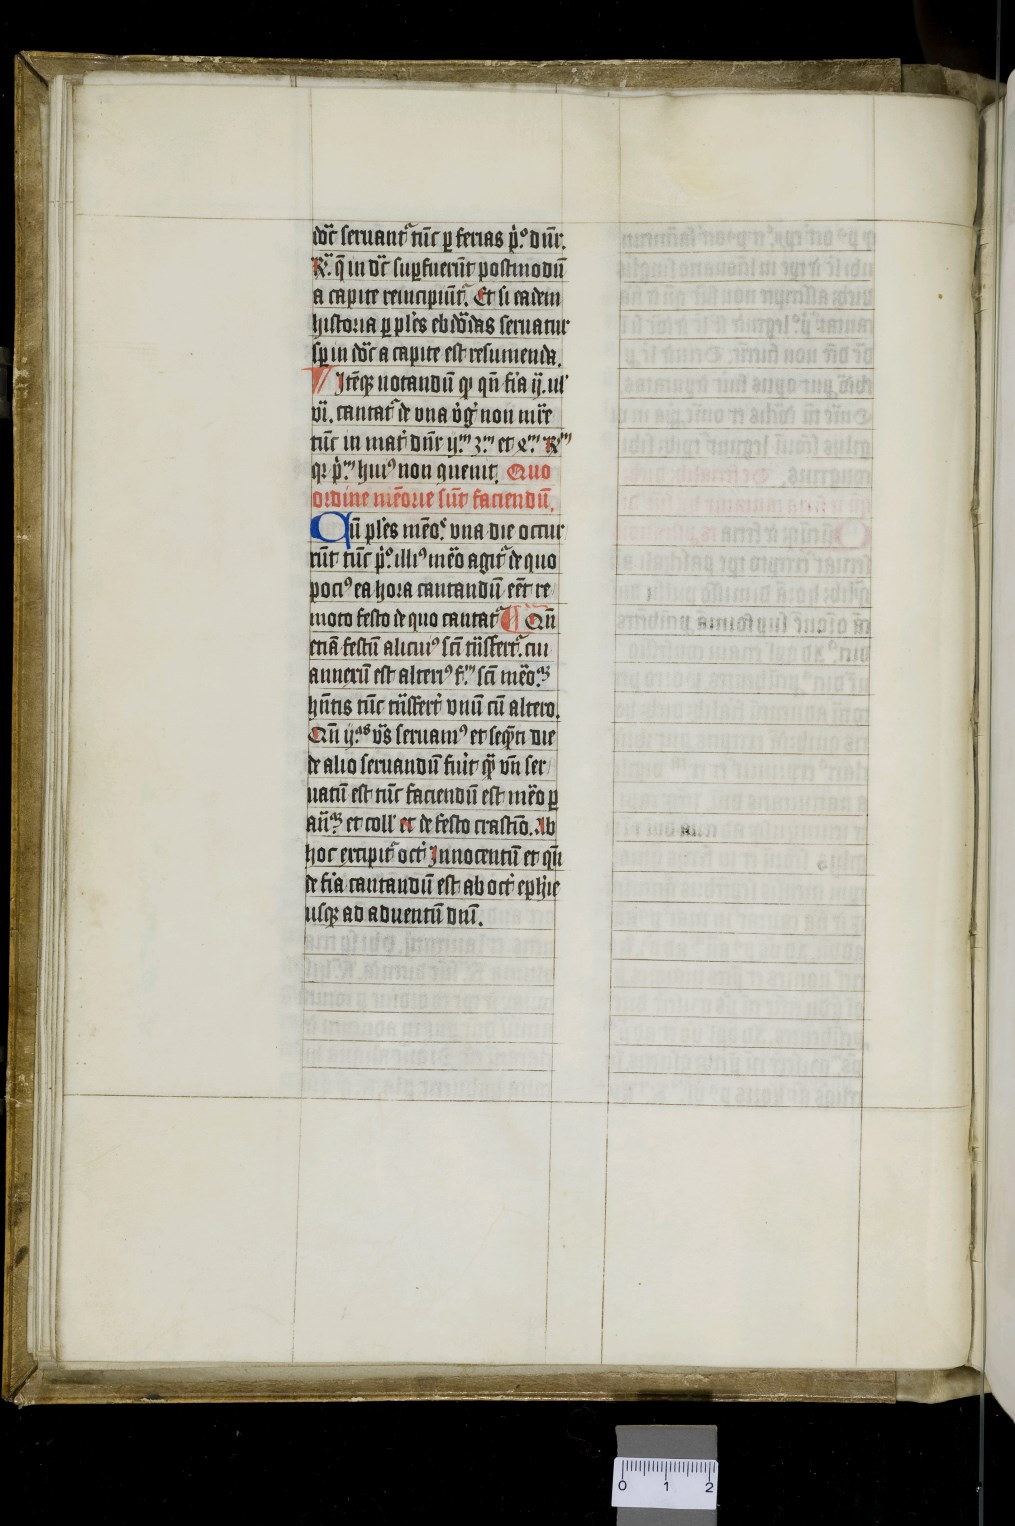 dōc seruant᷑ tūc ꝑ ferias p̓º dn̄r.
R̓. q̄ in dōc suꝑfuerūt postmodū
a capite reincipiūt᷑. Et si eadem
historia ꝑ ples ebdōdas seruatur
sꝑ in dōc a capite est resumenda.
Itēqꝫ notandū ꝙ qn̄ fīa ij. iiiˡ
vi. cantat᷑ de vna v̓g̓ non mr̄e
tūc in mat̓ dn̄r ij.ᵐ 3.ᵐ et x.ᵐ R̓ᵐ
qꝛ p̓.ᵐ huiꝰ non ꝯuenit. Quo
ordine mēorie sūt faciendū.
Qū ples mēo.ᵉ vna die occur
rūt tūc p̓.º illiꝰ mēo agit᷑ de quo
pociꝰ ea hora cantandū eēt re
moto festo de quo cantat᷑ Qn̄
etiā festū alicuiꝰ sc̄i trāsfert᷑. cui
annexū est alteriꝰ f.ᵐ sc̄i mēo.ᵃᵐ
hn̄tis tūc trāsfert̓ vnū cū altero.
Qn̄ ij.ᵃˢ v̄s seruamꝰ et seqn̄ti die
de alio seruandū fuit̓ qᷓ vn̄ ser
uatū est tūc faciendū est mēo ꝑ
an̄.ᵃᵐ et coll̓ et de festo crastīo. Ab
hoc excipit᷑ oct̓ Innocentū et qn̄
de fīa cantandū est ab oct̓ eph̓ie
usqꝫ ad aduentū dn̄i.